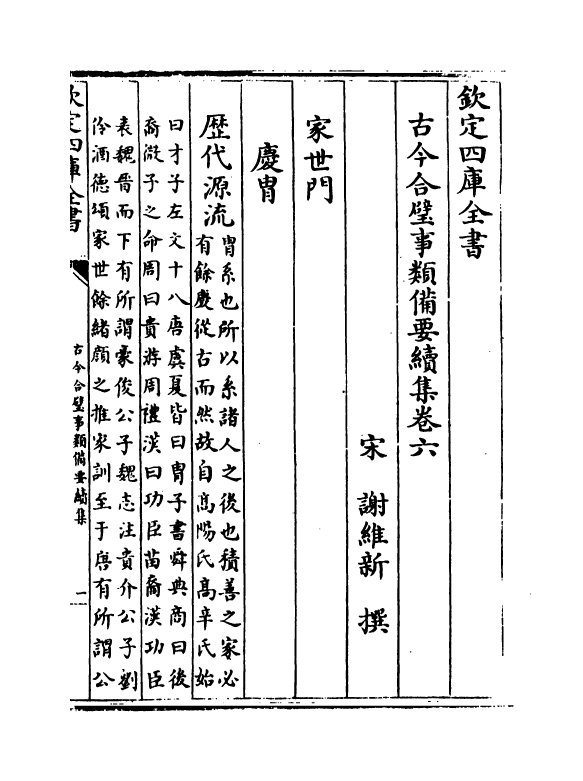 欽定四庫全書
古今合璧事類備要續集卷六
宋 謝維新 撰
家世門
慶胄
歴代源流
胄系也所以系諸人之後也積善之家必
有餘慶從古而然故自髙陽氏髙辛氏始
曰才子左文十八唐虞夏皆曰胄子書舜典商曰後
裔微子之命周曰貴游周禮漢曰功臣苗裔漢功臣
表魏晉而下有所謂豪俊公子魏志注貴介公子劉
伶酒徳頌家世餘緒顔之推家訓至于唐有所謂公
欽定四庫全書
古今合璧事類備要續集
一